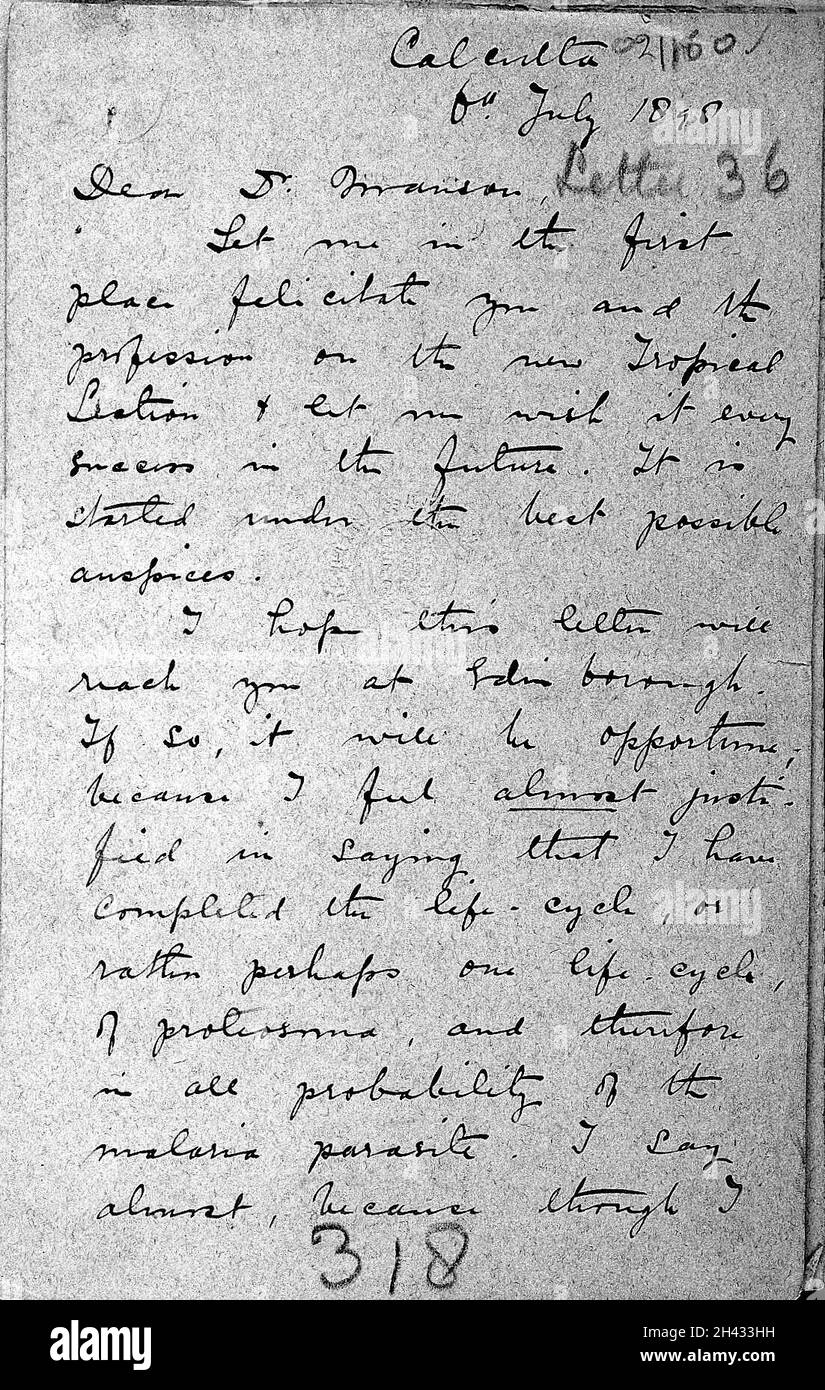 Calcutta 02/160
6th July 1898
Dear Dr. Manson, Letter 36
Let me in the first
place felicitate you and the
profession on the new Tropical
Section & let me wish it every
success in the future. It is
started under the best possible
auspices.
I hope this letter will
reach you at Edinborough.
If so, it will be opportune,
because I feel almost justi-
fied in saying that I have
completed the life-cycle, or
rather perhaps one life-cycle,
of proteosoma, and therefore
in all probability of the
malaria parasite. I say
almost, because though I
318
alamy
Image ID: 2H433HH
www.alamy.com